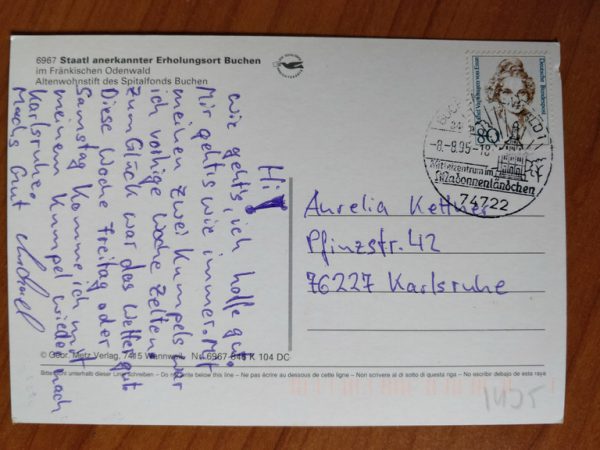 6967 Staatl anerkannter Erholungsort Buchen
im Fränkischen Odenwald
Altenwohnstift des Spitalfonds Buchen
Hi!
wie geht's, ich hoffe gut.
Mir geht's wie immer. Mit
meinen zwei Kumpels war
ich vorhige Woche Zelten.
Zum Glück war das Wetter gut
Diese Woche Freitag oder
Samstag komme ich mit
meinem Kumpel wieder nach
Karlsruhe.
Machs Gut
Deutsche Bundespost
80
-8.-8.95-18
Mittelzentrum im
Madonnenländchen
74722
Aurelia Kettner
Pfinzstr. 42
76227 Karlsruhe
© Gebr. Metz Verlag, 7415 Wannweil Nr. 6967 046 K 104 DC
Bitte nicht unterhalb dieser Linie schreiben - Do not write below this line - Ne pas écrire au dessous de cette ligne - Non scrivere al di sotto di questa riga - No escribir debajo de esta raya